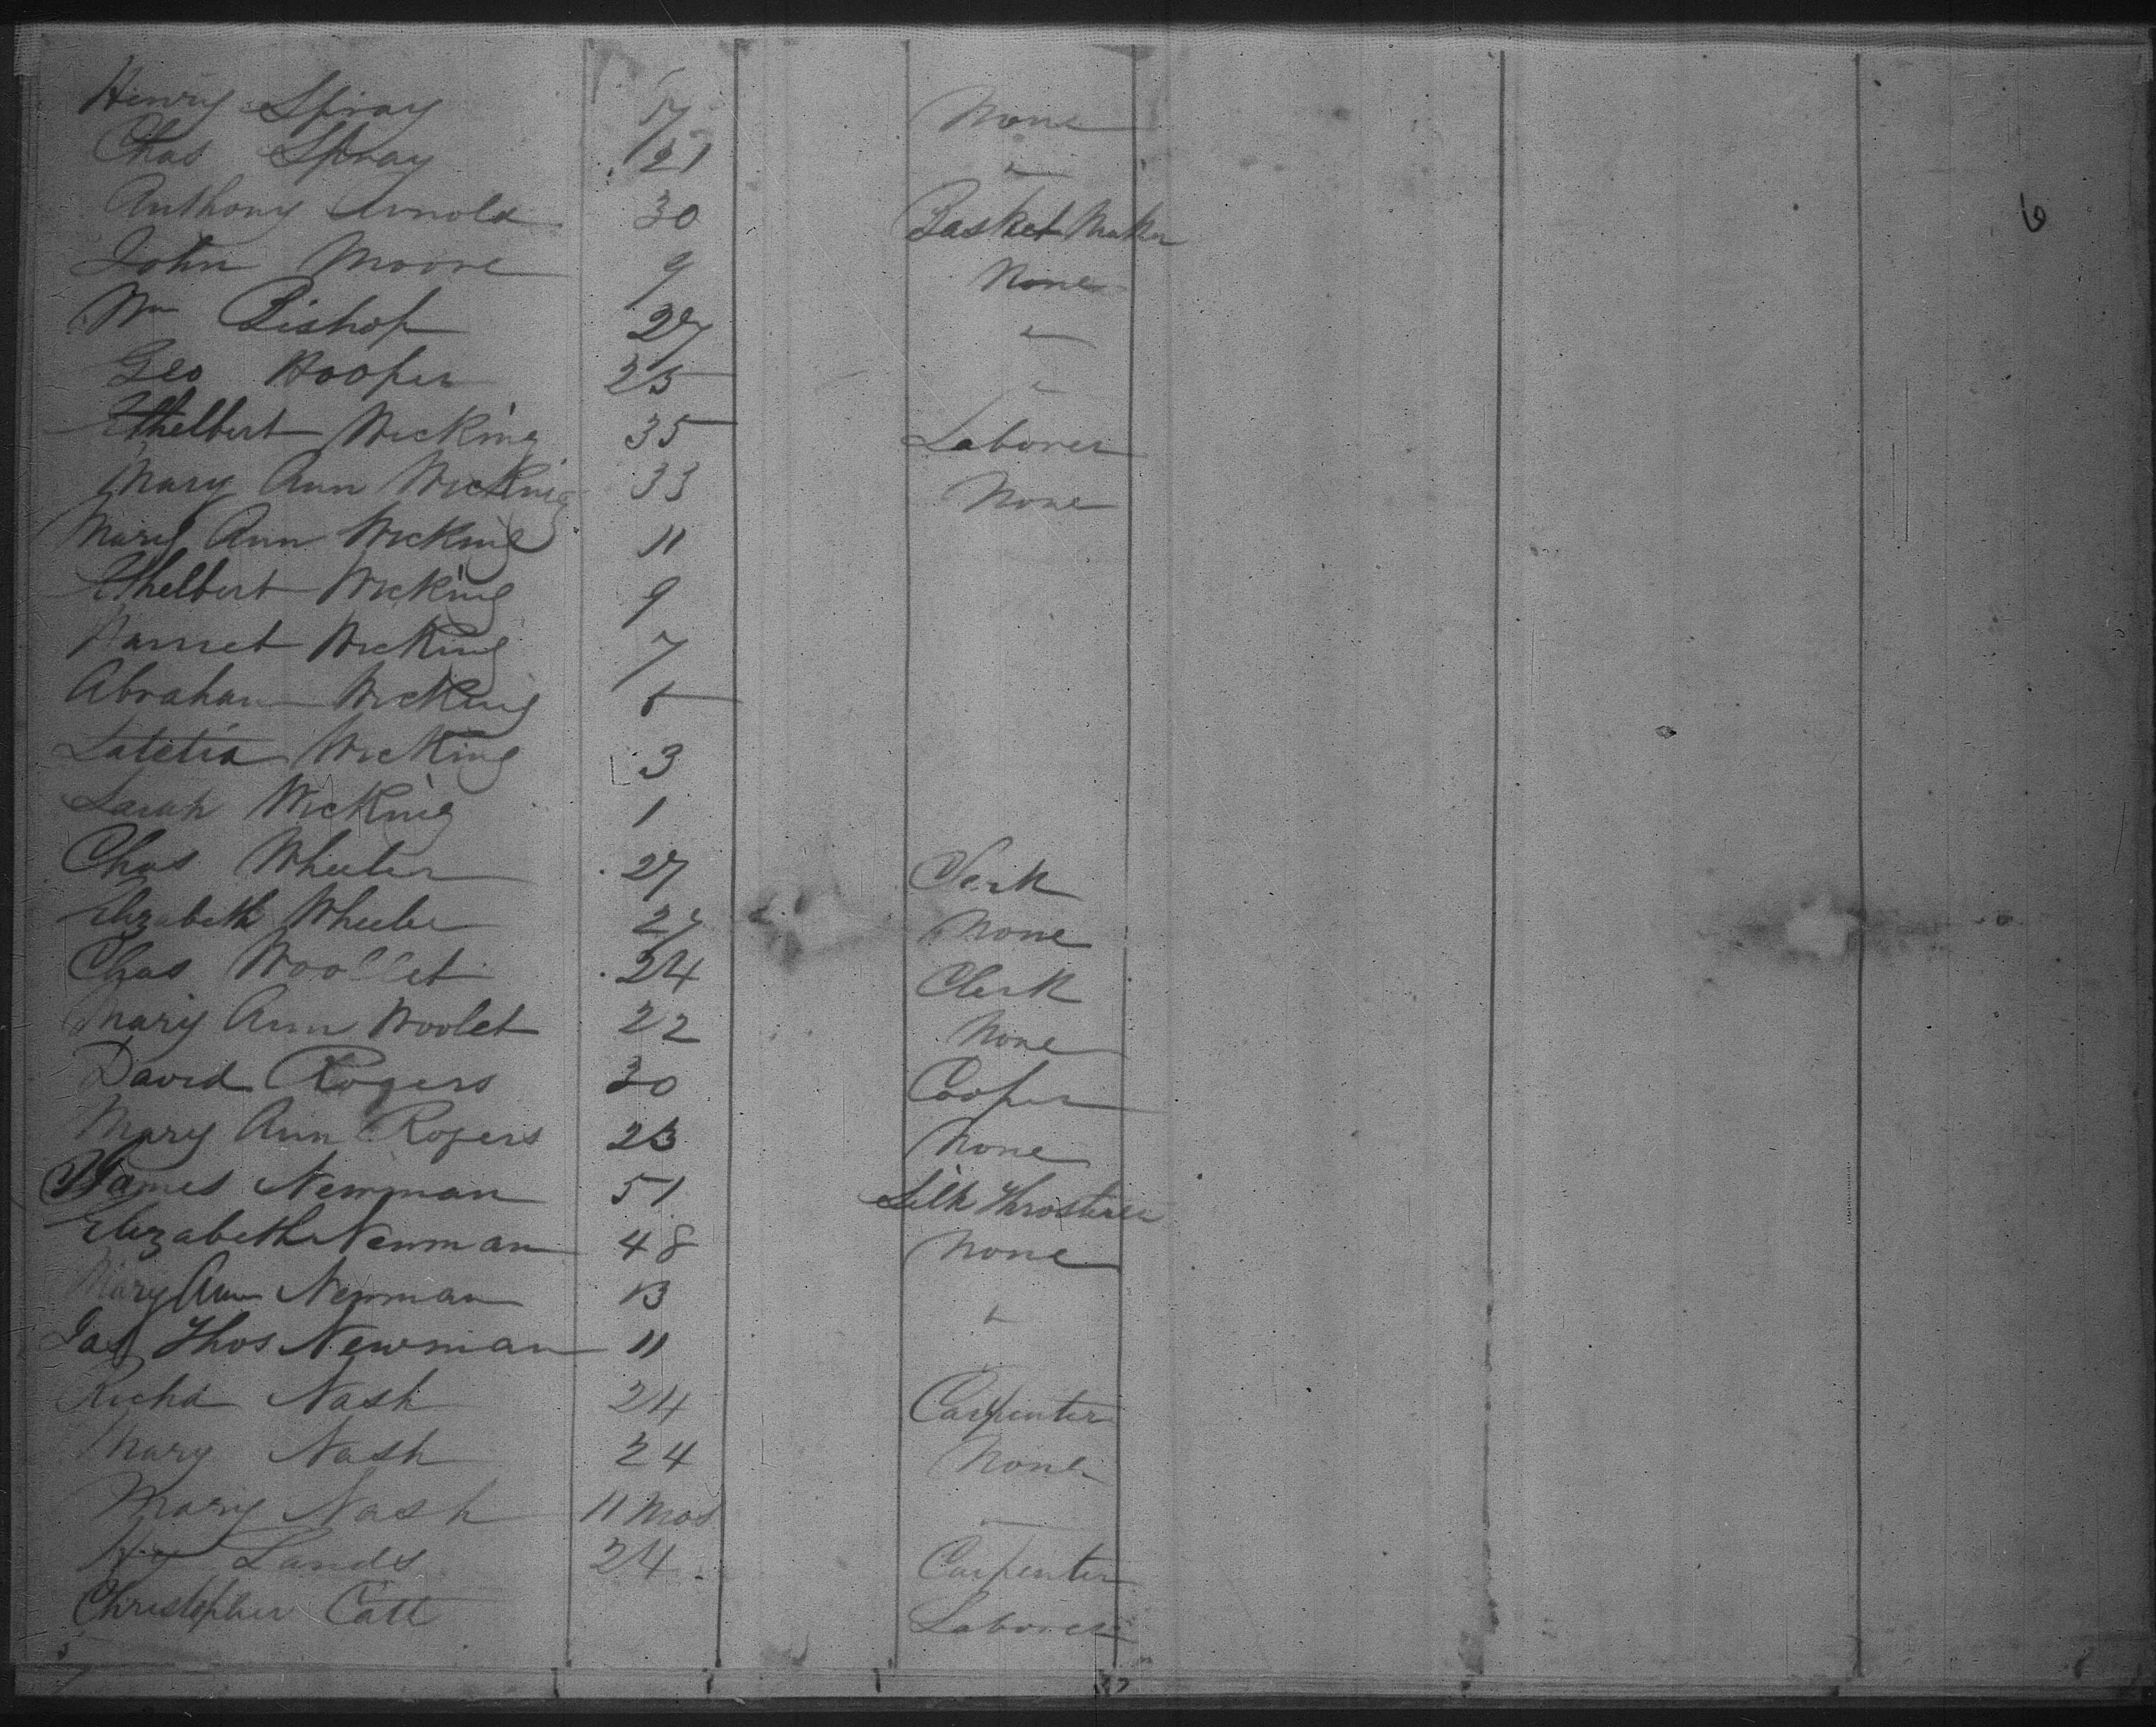 Henry Spray 17 None
Chas Spray 21 "
Anthony Arnold 30 Basket Maker
6
John Moore 9 None
Wm Bishop 27 "
Geo Hooper 25 "
Ethelbert Wicking 35 Laborer
Mary Ann Wicking 33 None
Mary Ann Wicking 11
Ethelbert Wicking 9
Harriet Wicking 7
Abraham Wicking 5
Latetia Wicking 3
Sarah Wicking 1
Chas Wheeler 27 Clerk
Elizabeth Wheeler 27 None
Chas Woollet 24 Clerk
Mary Ann Woolet 22 None
David Rogers 30 Cooper
Mary Ann Rogers 23 None
James Newman 51 Silk
Elizabeth Newman 48 None
Mary Ann Newman 13 "
Jas Thos Newman 11
Richd Nash 24 Carpenter
Mary Nash 24 None
Mary Nash 11 mos
Hy Sands 24 Carpenter
Christopher Catt Laborer